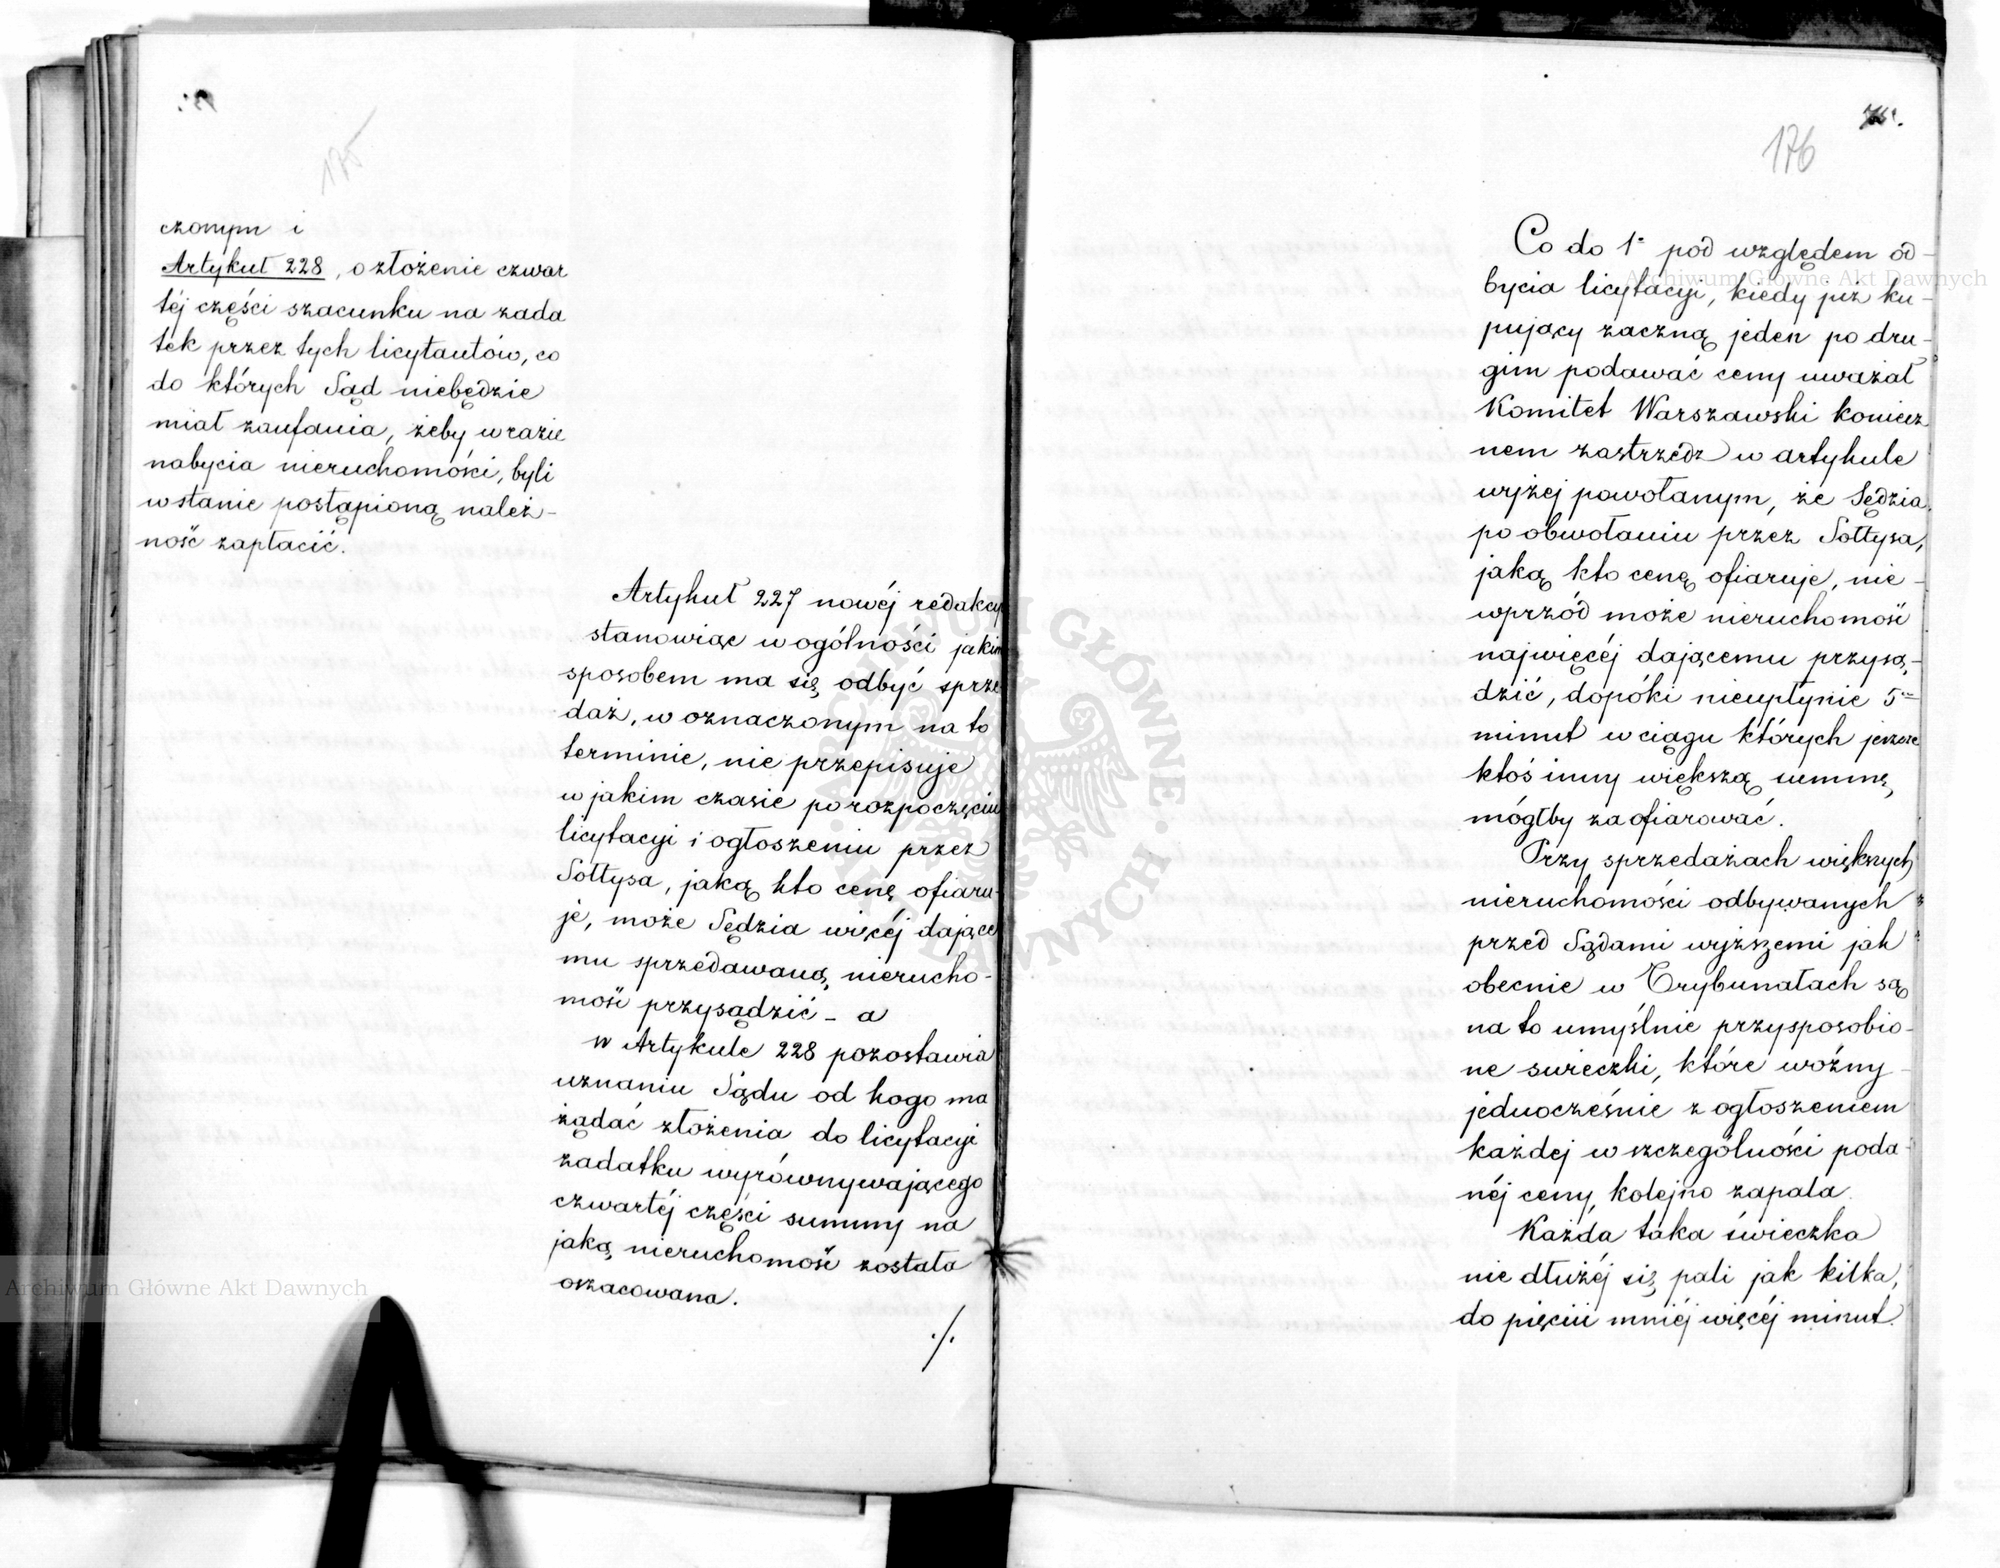 175
czonym i
Artykuł 228, o złożenie czwar
téj części szacunku na zada
tek przez tych licytantów, co
do których Sąd niebędzie
miał zaufania, żeby w razie
nabycia nieruchomości, byli
w stanie postąpioną należ-
ność zapłacić.
Artykuł 227 nowéj redakcyi
stanowiąc w ogólności jakim
sposobem ma się odbyć sprze
daż, w oznaczonym na to
terminie, nie przepisuje
w jakim czasie po rozpoczęciu
licytacyi i ogłoszeniu przez
Sołtysa, jaką kto cenę ofiaru-
je, może Sędzia więcéj dające
mu sprzedawaną nierucho-
mość przysądzić - a
w Artykule 228 pozostawia
uznaniu Sądu od kogo ma
żądać złożenia do licytacyi
zadatku wyrównywającego
czwartéj części summy na
jaką nieruchomość została
oszacowana.
./.
176
Co do 1º pod względem od-
bycia licytacyi, kiedy już ku-
pujący zaczną jeden po dru-
gim podawać ceny uważał
Komitet Warszawski koniecz
nem zastrzedz w artykule
wyżej powołanym, że Sędzia
po obwołaniu przez Sołtysa,
jaką kto cenę ofiaruje, nie-
wprzód może nieruchomość
najwięcéj dającemu przysą-
dzić, dopóki nieupłynie 5ciu
minut w ciągu których jeszcze
ktoś inny większą summę
mógłby zaofiarować.
Przy sprzedażach większych
nieruchomości odbywanych
przed Sądami wyższemi jak
obecnie w Trybunałach są
na to umyślnie przysposobio-
ne świeczki, które woźny
jednocześnie z ogłoszeniem
każdej w szczególności poda-
néj ceny, kolejno zapala.
Każda taka świeczka
nie dłużéj się pali jak kilka,
do pięciu mniéj więcéj minut.
Archiwum Główne Akt Dawnych
Archiwum Główne Akt Dawnych
ARCHIWUM GŁÓWNE AKT DAWNYCH